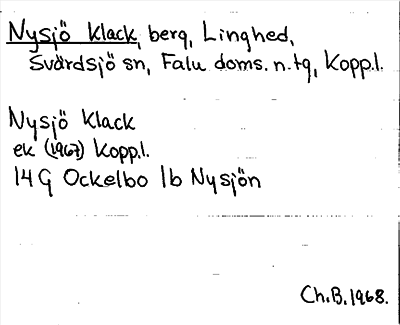 Nysjö Klack, berg, Linghed,
Svärdsjö sn, Falu doms. n. tg, Kopp.l.
Nysjö Klack
ek (1967) Kopp.l.
14G Ockelbo 1b Nysjön
Ch.B. 1968.